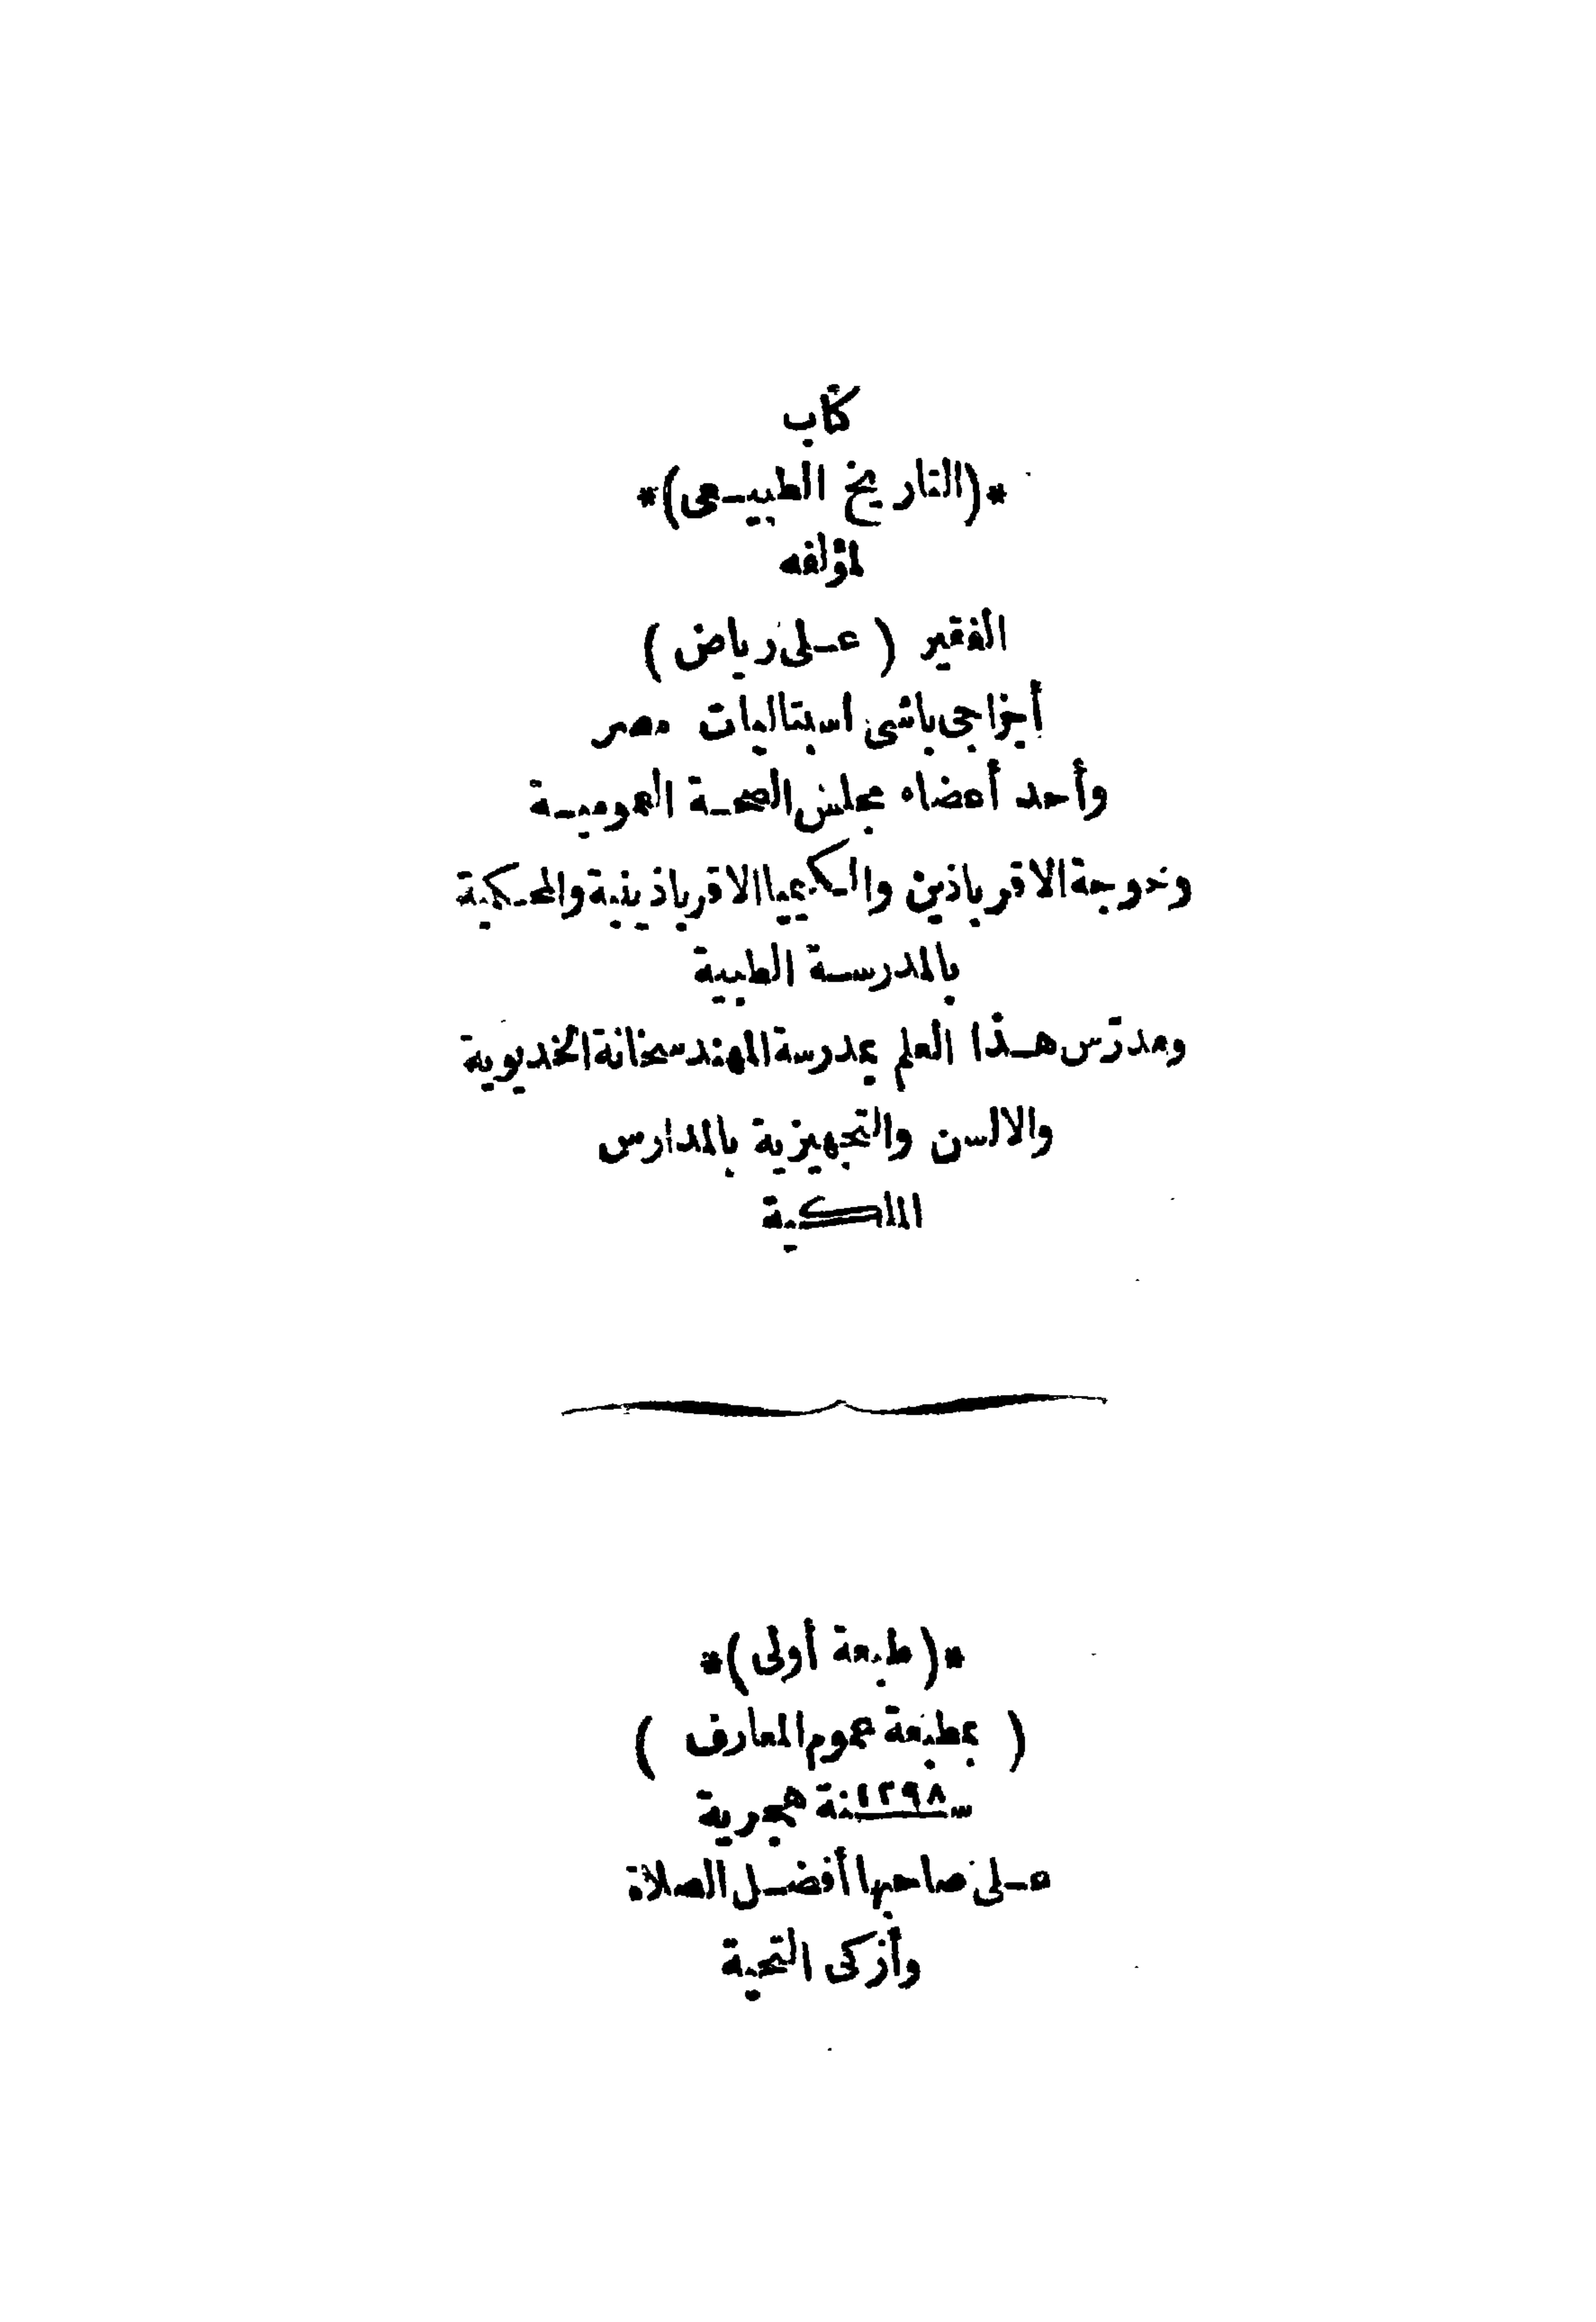 كتاب
*(التاريخ الطبيـعى)*
لمؤلفه
الفقير ( عـلى رياض )
أجزاجى باشى اسبتاليات مصر
وأحد أعضاء مجلس الصحـة العموميـة
وخوجة الاقرباذين والـكيميا الاقرباذينية والمحـكمية
بالمدرسـة الطبية
ومدرّس هـذا العلم بمدرسة المهندسخانة الخديوية
والالسن والتجهيزية بالمدارس
الملكية
*( طبعة أولى )*
( بمطبعة عموم المعارف )
سنة ١٢٩٨ هجرية
عـلى صاحبها أفضـل الصلاة
وأزكى التحية